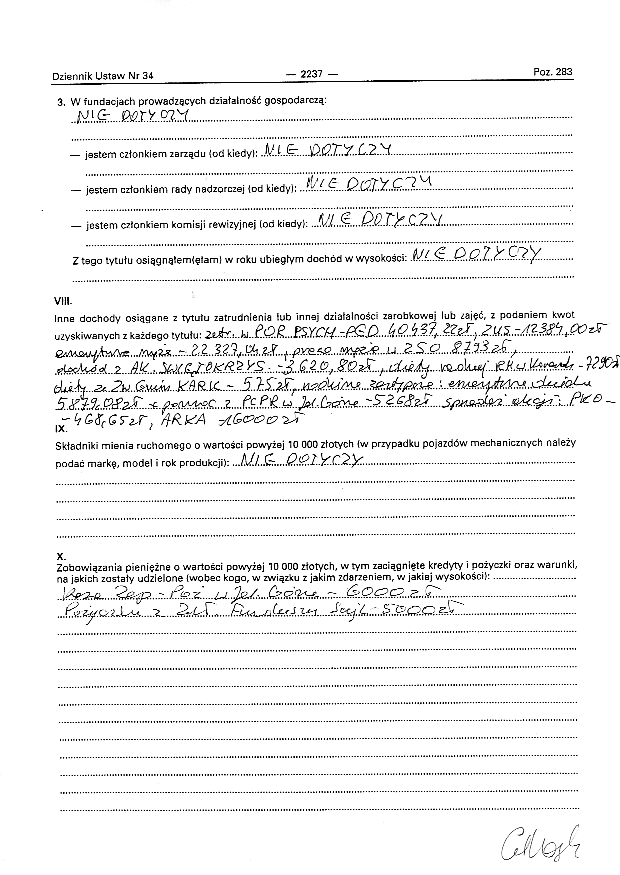 Dziennik Ustaw Nr 34 — 2237 — Poz. 283
3. W fundacjach prowadzących działalność gospodarczą:
NIE DOTYCZY
— jestem członkiem zarządu (od kiedy): NIE DOTYCZY
— jestem członkiem rady nadzorczej (od kiedy): NIE DOTYCZY
— jestem członkiem komisji rewizyjnej (od kiedy): NIE DOTYCZY
Z tego tytułu osiągnąłem(ęłam) w roku ubiegłym dochód w wysokości: NIE DOTYCZY
VIII.
Inne dochody osiągane z tytułu zatrudnienia lub innej działalności zarobkowej lub zajęć, z podaniem kwot
uzyskiwanych z każdego tytułu: zatr. w POR PSYCH-PED 40437,22zł, ZUS-12384,00zł
emerytura męża - 22 327,04zł, praca męża w 250 8793zł,
dochód z AK. ŚWIĘTOKRZYS. -3620,80zł, diety radnej RM w -7290zł
diety za Zw. Gmin KARK - 575zł, rodzina zastępcza: emerytura
5879,08zł pomoc z PCPR w Jel. Górze -5268zł sprzedaż akcji: PKO-
-468,65zł, ARKA 16000zł
IX.
Składniki mienia ruchomego o wartości powyżej 10 000 złotych (w przypadku pojazdów mechanicznych należy
podać markę, model i rok produkcji): NIE DOTYCZY
X.
Zobowiązania pieniężne o wartości powyżej 10 000 złotych, w tym zaciągnięte kredyty i pożyczki oraz warunki,
na jakich zostały udzielone (wobec kogo, w związku z jakim zdarzeniem, w jakiej wysokości):
Kasa Zap - Poż w Jel. Górze - 6000 zł
Pożyczka z Funduszu Socj. 5000zł